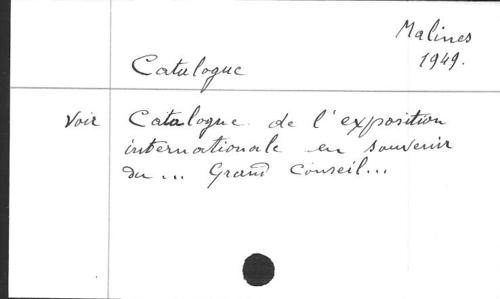 Malines
1949.
Catalogue
Voir Catalogue de l'exposition
internationale en souvenir
du ... Grand Conseil...